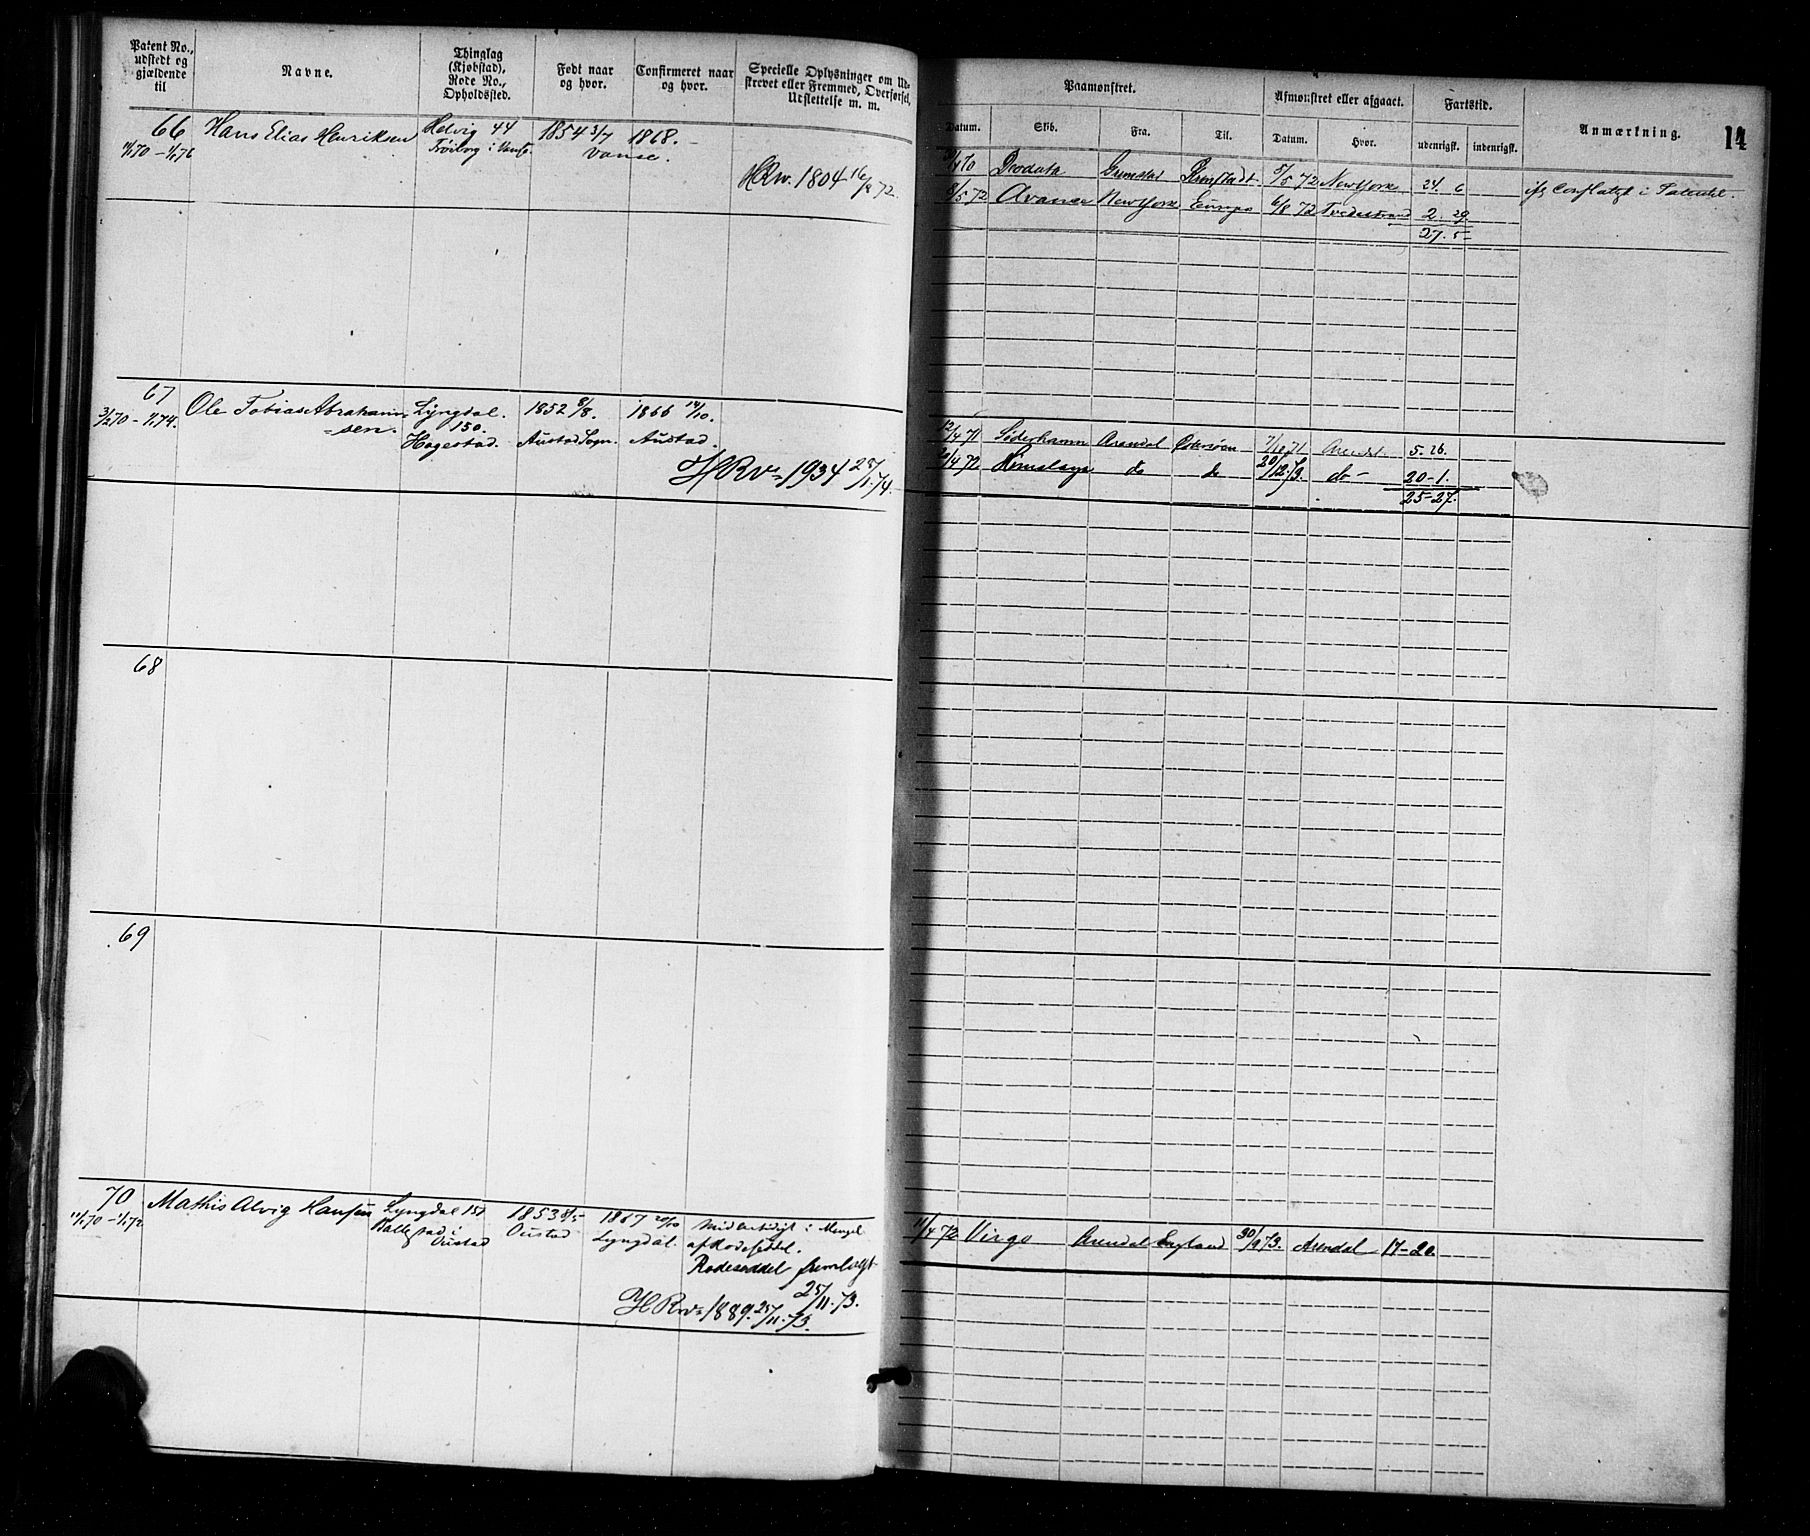 Patent No., udstedt og gjældende til
Navne.
Thinglag (Kjøbstad), Rode No., Opholdssted.
Født naar og hvor.
Confirmeret naar og hvor.
Specielle Oplysninger om Udskrevet eller Fremmed, Overførsel, Udslettelse m. m.
Paamønstret.
Afmønstret eller afgaaet.
Fartstid.
Anmærkning.
14
Datum.
Skib.
Fra.
Til.
Datum.
Hvor.
udenrigsk.
indenrigsk.
66
Hans Elias Henriksen
Helvig 44
1854 3/7
1868.
Vanse.
HRw. 1804 16/8 72.
Deodata Grimstad 5/5 72 NewYork 24. 6
8/5 72 Avance NewYork Europa 6/8 72 Tvedestrand 2. 29
27. 5
67
3/2 70 - 1/1 74.
Ole Tobias Abraham-
sen.
Lyngdal.
150.
Hagestad.
1852 8/8.
Austad Sogn.
1866 14/10.
Austad.
HRw 1934 25/1.74.
12/4 71 Söderhamn Arendal Østersøen 7/10 71 Arendal 5-26.
20/4 72 Himalaya do do 20/12.73. do 20-1.
25-27.
68
69
70
11/1 70 - 1/1 72.
Mathis Alvig Hansen
Lyngdal 151
Austad
1853 8/5
Oustad
1867 20/10
Lyngdal.
Midlertidigt i Mangel
af Rodeseddel.
Rodeseddel fremlagt
25/11.73.
HRw 1889. 25/11.73.
11/4 72 Virgo Arendal England 30/9 73. Arendal 17-20.